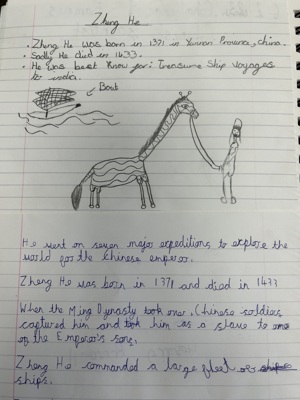 Zheng He
• Zheng He was born in 1371 in Yunnan Province, China.
• Sadly He died in 1433.
• He was best Know for: Treasure Ship Voyages
to india.
Boat
He went on seven major expeditions to explore the
world for the Chinese emperor.
Zheng He was born in 1371 and died in 1433
When the Ming Dynasty took over, Chinese soldiers
captured him and took him as a slave to one
of the Emperor's sons.
Zheng He commanded a large fleet of
ships.